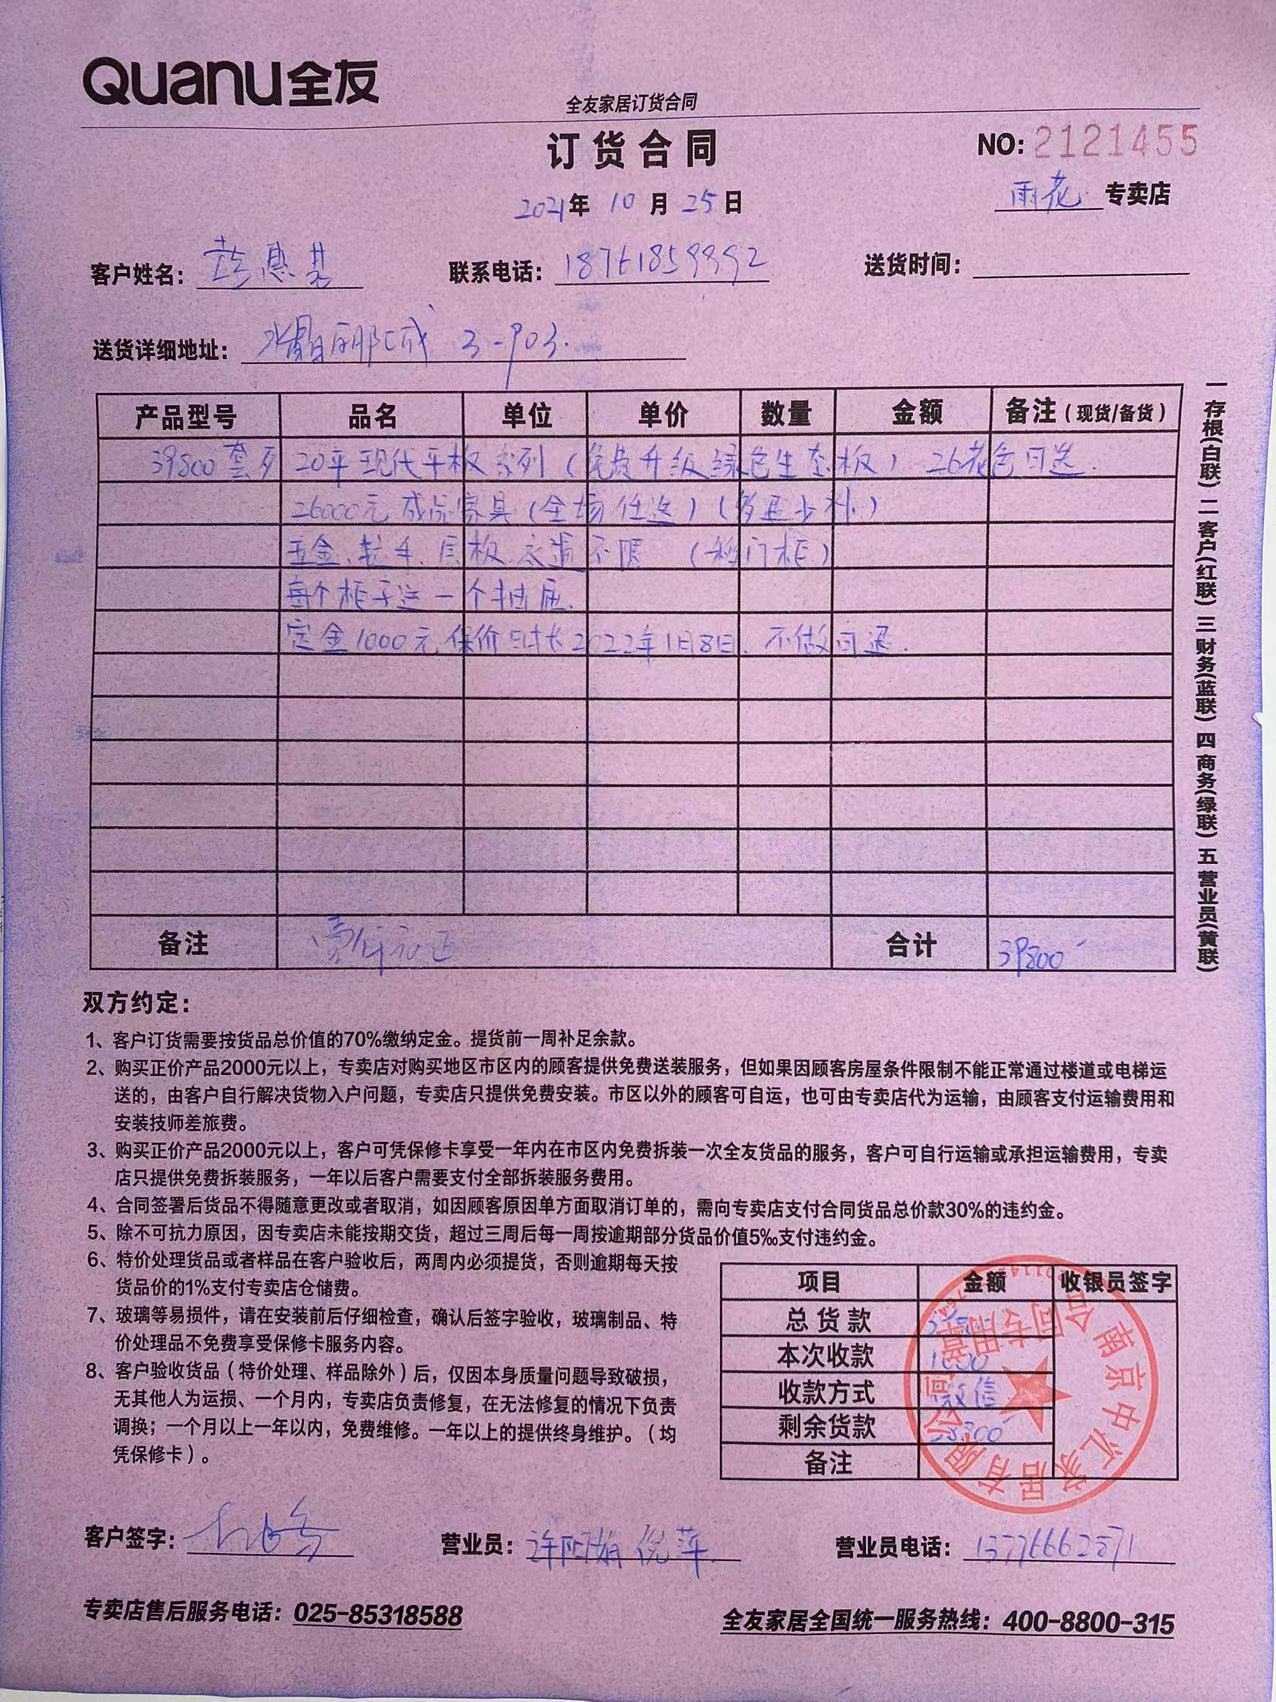 Quanu全友
全友家居订货合同
订货合同
NO: 2121455
2021年 10 月 25 日
雨花 专卖店
客户姓名: 惠
联系电话:
送货时间:
送货详细地址: 水晶丽都城 3-903.
产品型号 品名 单位 单价 数量 金额 备注(现货/备货)
39800套系 20年现代平板系列(免费升级绿色生态板) 26花色可选.
26000元成品家具(全场任选)(多退少补)
五金、拉手、同板、衣通不限 (移门柜)
每个柜子送一个抽屉.
定金1000元保价时长2022年1月8日. 不做可退.
备注 合计 39800
一存根(白联) 二客户(红联) 三财务(蓝联) 四商务(绿联) 五营业员(黄联)
双方约定:
1、客户订货需要按货品总价值的70%缴纳定金。提货前一周补足余款。
2、购买正价产品2000元以上,专卖店对购买地区市区内的顾客提供免费送装服务,但如果因顾客房屋条件限制不能正常通过楼道或电梯运
送的,由客户自行解决货物入户问题,专卖店只提供免费安装。市区以外的顾客可自运,也可由专卖店代为运输,由顾客支付运输费用和
安装技师差旅费。
3、购买正价产品2000元以上,客户可凭保修卡享受一年内在市区内免费拆装一次全友货品的服务,客户可自行运输或承担运输费用,专卖
店只提供免费拆装服务,一年以后客户需要支付全部拆装服务费用。
4、合同签署后货品不得随意更改或者取消,如因顾客原因单方面取消订单的,需向专卖店支付合同货品总价款30%的违约金。
5、除不可抗力原因,因专卖店未能按期交货,超过三周后每一周按逾期部分货品价值5‰支付违约金。
6、特价处理货品或者样品在客户验收后,两周内必须提货,否则逾期每天按
货品价的1%支付专卖店仓储费。
7、玻璃等易损件,请在安装前后仔细检查,确认后签字验收,玻璃制品、特
价处理品不免费享受保修卡服务内容。
8、客户验收货品(特价处理、样品除外)后,仅因本身质量问题导致破损,
无其他人为运损、一个月内,专卖店负责修复,在无法修复的情况下负责
调换;一个月以上一年以内,免费维修。一年以上的提供终身维护。(均
凭保修卡)。
项目 金额 收银员签字
总货款
本次收款 1000
收款方式 微信
剩余货款 38800
备注
南京中汇家居有限公司
合同专用章
客户签字:
营业员: 倪萍
营业员电话:
专卖店售后服务电话: 025-85318588
全友家居全国统一服务热线: 400-8800-315